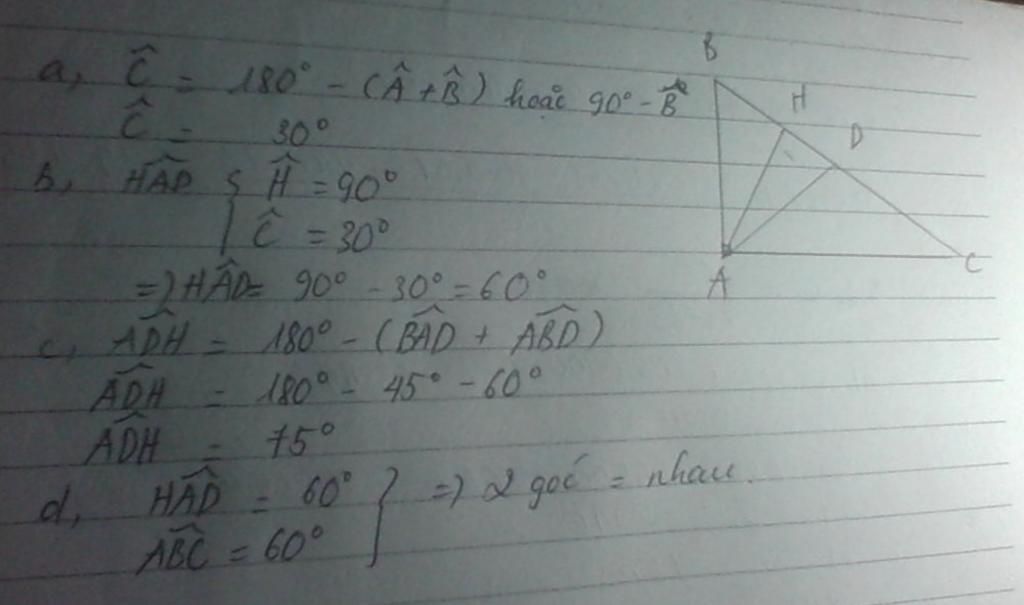 a, Ĉ = 180° - (Â + B̂) hoặc 90° - B̂
Ĉ = 30°
b, HAD { Ĥ = 90°
Ĉ = 30°
=> HÂD = 90° - 30° = 60°
c, ADH = 180° - (BAD + ABD)
ADH = 180° - 45° - 60°
ADH = 75°
d, HAD = 60°
ABC = 60° } => 2 goć = nhau.
B
H
D
A
C